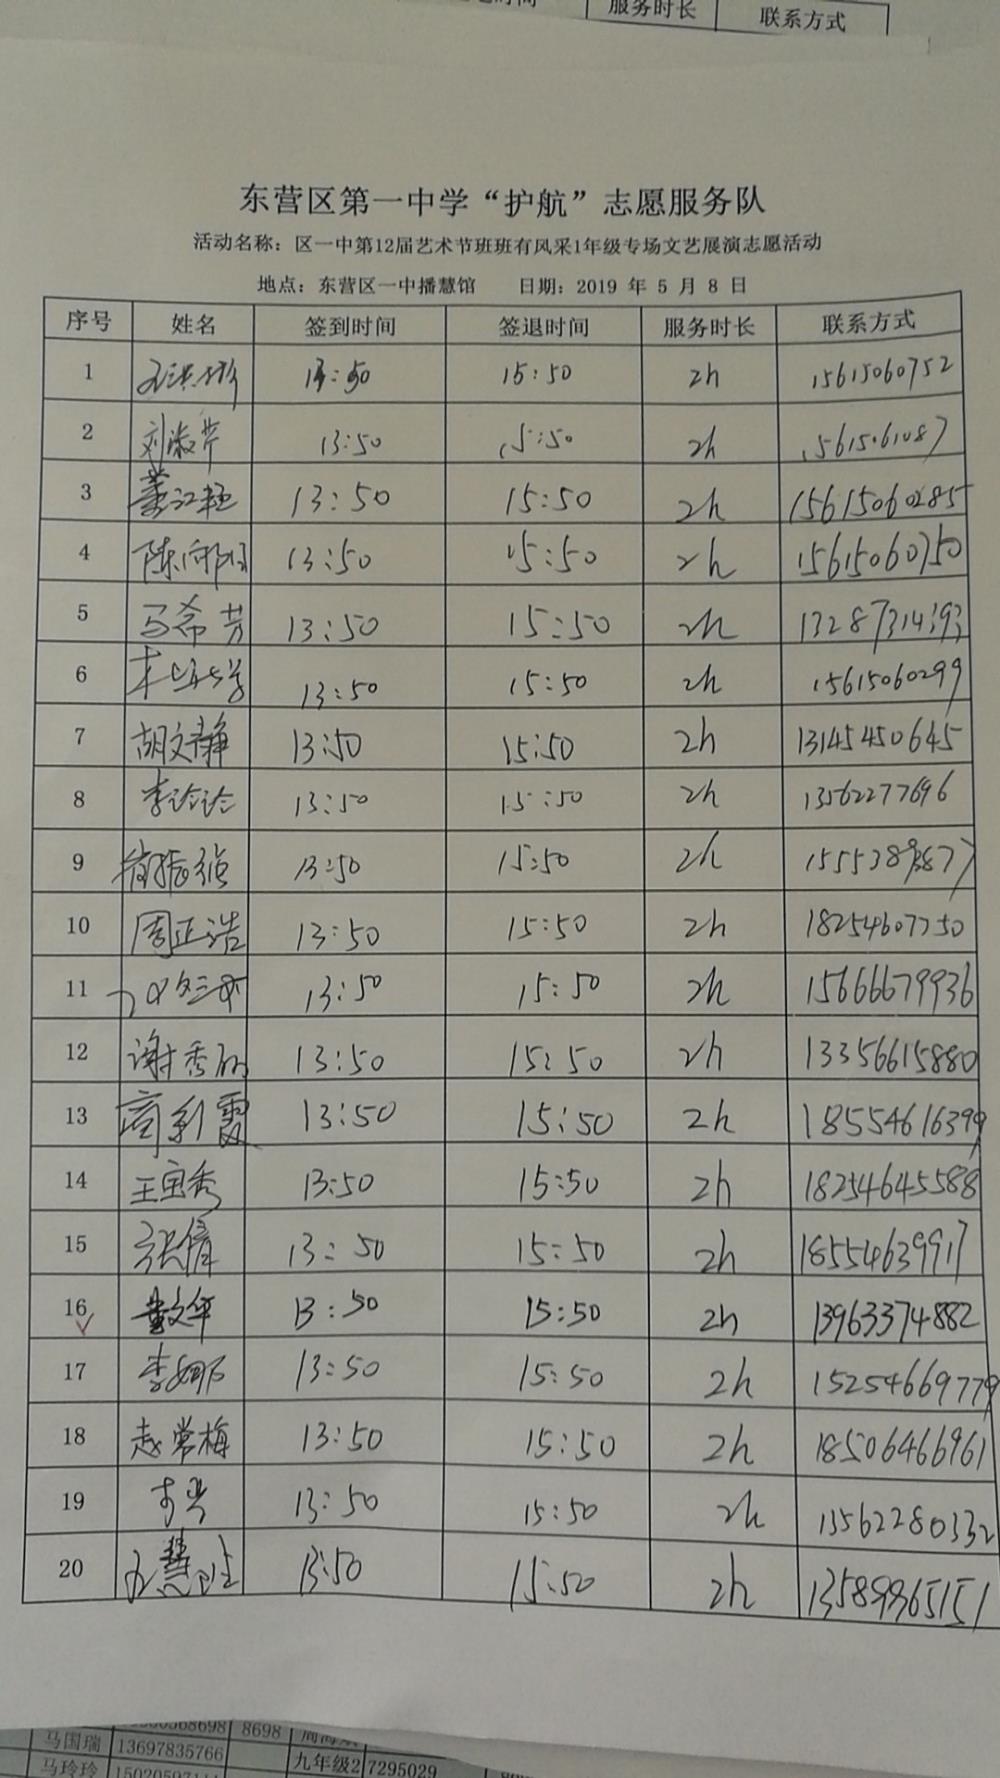 服务时长 联系方式
东营区第一中学“护航”志愿服务队
活动名称：区一中第12届艺术节班班有风采1年级专场文艺展演志愿活动
地点：东营区一中播慧馆 日期：2019 年 5 月 8 日
序号 姓名 签到时间 签退时间 服务时长 联系方式
1 13:50 15:50 2h 15615060752
2 刘淑芹 13:50 15:50 2h 15615061087
3 董江艳 13:50 15:50 2h 15615060285
4 13:50 15:50 2h 15615060750
5 马希芳 13:50 15:50 2h 13287314393
6 13:50 15:50 2h 15615060299
7 胡文静 13:50 15:50 2h 13145450645
8 李玲玲 13:50 15:50 2h 13562277696
9 13:50 15:50 2h
10 周正浩 13:50 15:50 2h 18254607750
11 13:50 15:50 2h 15666679936
12 谢秀丽 13:50 15:50 2h 13356615880
13 商彩霞 13:50 15:50 2h 18554616399
14 王宝秀 13:50 15:50 2h 18254645588
15 张倩 13:50 15:50 2h 18554639917
16 董文华 13:50 15:50 2h 13963374882
17 李娜 13:50 15:50 2h 15254669779
18 赵常梅 13:50 15:50 2h 18506466961
19 13:50 15:50 2h 13562280332
20 13:50 15:50 2h 13589965151
8698
马国瑞 13697835766 九年级2 7295029
马玲玲